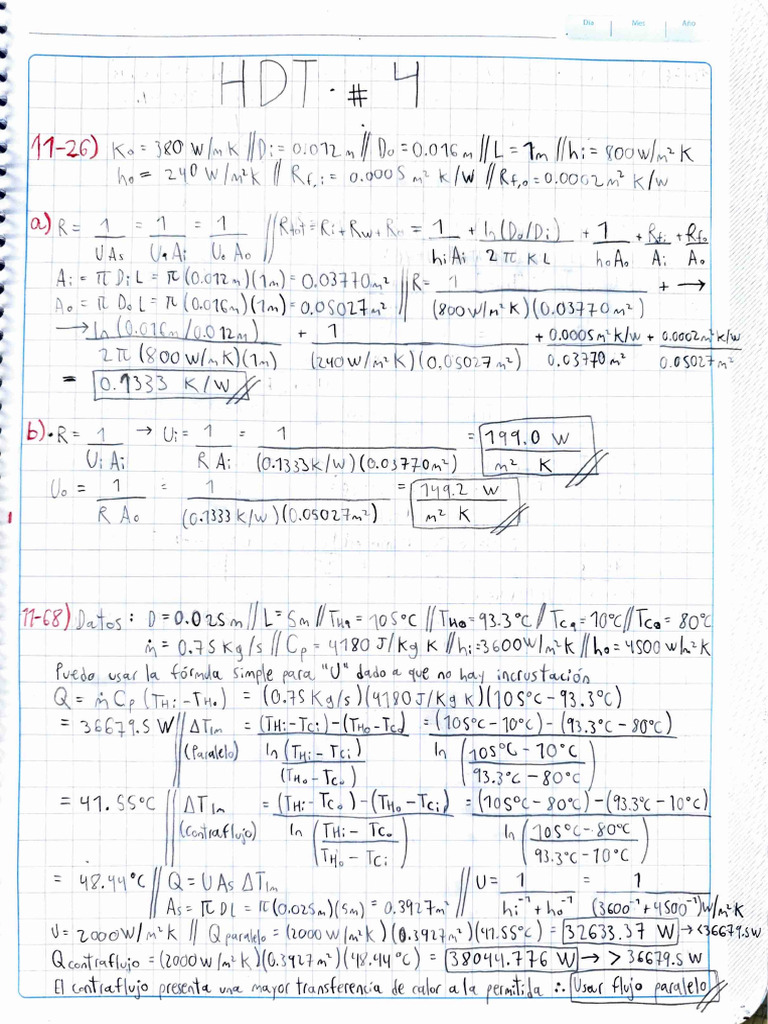 Dia Mes Año
HDT. # 4
11-26) Ko = 380 W/mK // Di = 0.012 m // Do = 0.016 m // L = 1m // hi = 800 W/m² K
ho = 240 W/m²K // Rf,i = 0.0005 m² K/W // Rf,o = 0.0002 m² K/W
a) R = 1/(U As) = 1/(Ui Ai) = 1/(Uo Ao) // Rtot = Ri + Rw + Ro = 1/(hi Ai) + ln(Do/Di)/(2π KL) + 1/(ho Ao) + Rfi/Ai + Rfo/Ao
Ai = π Di L = π(0.012m)(1m) = 0.03770m² // R = 1/((800 W/m² K)(0.03770 m²)) + →
Ao = π Do L = π(0.016m)(1m) = 0.05027m²
→ ln(0.016m/0.012m)/(2π(800 W/mK)(1m)) + 1/((240 W/m² K)(0.05027 m²)) + 0.0005 m² K/W/0.03770 m² + 0.0002 m² K/W/0.05027 m²
= 0.1333 K/W //
b) • R = 1/(Ui Ai) → Ui = 1/(R Ai) = 1/((0.1333 K/W)(0.03770m²)) = 199.0 W/(m² K) //
Uo = 1/(R Ao) = 1/((0.1333 K/W)(0.05027m²)) = 149.2 W/(m² K) //
11-68) Datos: D = 0.025 m // L = 5m // THi = 105°C // THo = 93.3°C / TCi = 10°C // TCo = 80°C
ṁ = 0.75 Kg/s // Cp = 4180 J/Kg K // hi = 3600 W/m²K // ho = 4500 W/m²K
Puedo usar la fórmula simple para "U" dado a que no hay incrustación
Q = ṁ Cp (THi - THo) = (0.75 Kg/s)(4180 J/Kg K)(105°C - 93.3°C)
= 36679.5 W // ΔTlm (paralelo) = ((THi - TCi) - (THo - TCo))/ln((THi - TCi)/(THo - TCo)) = ((105°C - 10°C) - (93.3°C - 80°C))/ln((105°C - 10°C)/(93.3°C - 80°C))
= 41.55°C // ΔTlm (contraflujo) = ((THi - TCo) - (THo - TCi))/ln((THi - TCo)/(THo - TCi)) = ((105°C - 80°C) - (93.3°C - 10°C))/ln((105°C - 80°C)/(93.3°C - 10°C))
= 48.44°C // Q = U As ΔTlm // U = 1/(hi⁻¹ + ho⁻¹) = 1/((3600⁻¹ + 4500⁻¹) W/m² K)
As = π DL = π(0.025m)(5m) = 0.3927m²
U = 2000 W/m² K // Q paralelo = (2000 W/m² K)(0.3927m²)(41.55°C) = 32633.37 W → < 36679.5W
Q contraflujo = (2000 W/m² K)(0.3927m²)(48.44°C) = 38044.776 W → > 36679.5 W
El contraflujo presenta una mayor transferencia de calor a la permitida ∴ Usar flujo paralelo //